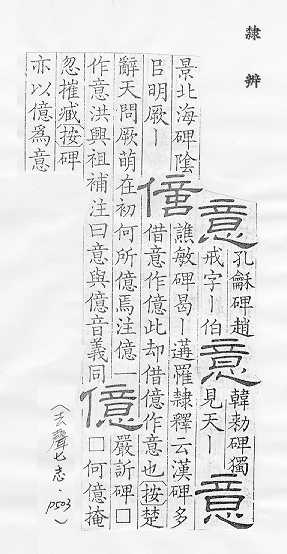 隸辨
意
孔龢碑趙
戒字—伯
意
韓勑碑獨
見天—
意
景北海碑陰
吕明厥—
譙敏碑曷—遘罹隸釋云漢碑多
借意作億此却借億作意也按楚
辭天問厥萌在初何所億焉注億一
作意洪興祖補注曰意與億音義同
億
嚴訢碑□
□何億掩
忽摧臧按碑
亦以億為意
（去聲七志．P503）